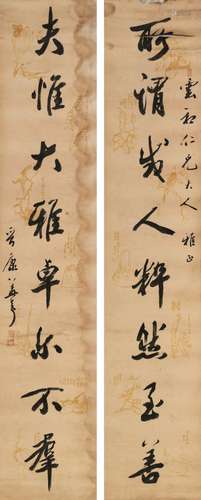 所謂成人粹然至善
雲和仁兄大人 雅正
夫惟大雅卓尔不群